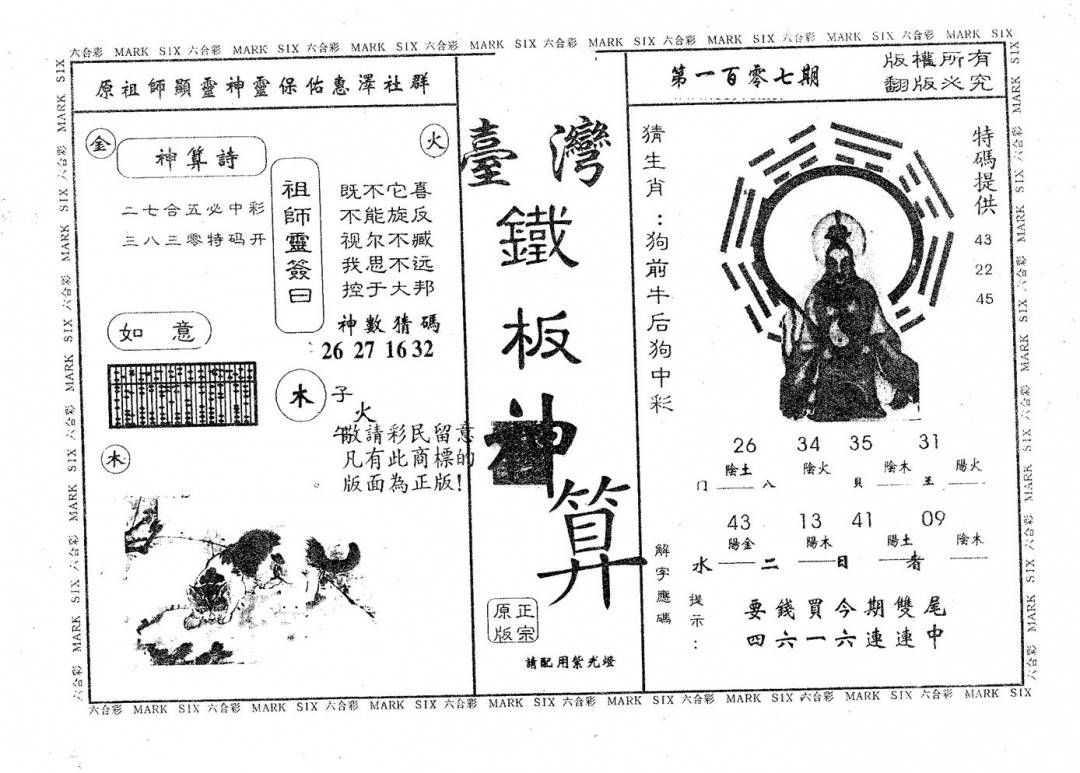 六合彩 MARK SIX 六合彩 MARK SIX 六合彩 MARK SIX 六合彩 MARK SIX 六合彩 MARK SIX 六合彩 MARK SIX 六合彩 MARK SIX 六合彩 MARK SIX
原祖師顯靈神靈保佑惠澤社群
金
火
神算詩
二七合五必中彩
三八三零特码开
祖師靈簽曰
既不它喜
不能旋反
视尔不臧
我思不远
控于大邦
神數猜碼
26 27 16 32
如意
木
子
火
午
敬請彩民留意
凡有此商標的
版面為正版!
木
臺灣
鐵
板
神
算
正宗
原版
請配用紫光燈
第一百零七期
版權所有
翻版必究
猜生肖:狗前牛后狗中彩
特碼提供
43
22
45
26 34 35 31
陰土 陰火 陰木 陽火
门 八 貝 王
43 13 41 09
陽金 陽木 陽土 陰木
水 二 日 者
解字應碼
提示:
要錢買今期雙尾
四六一六連連中
六合彩 MARK SIX 六合彩 MARK SIX 六合彩 MARK SIX 六合彩 MARK SIX 六合彩 MARK SIX 六合彩 MARK SIX 六合彩 MARK SIX 六合彩 MARK SIX